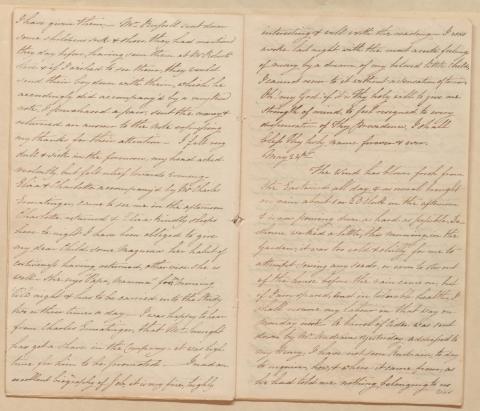 I have given them, - Mr
some childrens socks & those they had
they day before, having seen them at Mr
& if I wished to see them, they would
send their boy down with them, which he
accordingly did accompany'd by a very
note, I purchased a pair, sent the money &
returned an answer to the note expressing
my thanks for their attention - I felt very
dull & sick in the forenoon, my head ached
violently but felt relief towards evening.
Eliza & Charlotte accompany'd by Mr Charles
Ermatinger came to see me in the afternoon
Charlotte returned & Eliza kindly stops
here to night I have been obliged to give
my dear Childe some Magnesia her habit of
costiveness having returned, otherwise she is
well - She says Papa, Mamma good morning
good night & has to be carried in to the Study
two or three times a day - I was happy to hear
from Charles Ermatinger, that Mr
has got a share in the Company. it was high
time for him to be promoted. - I read an
excellent biography of Job, it was long, highly
interesting & well worth the reading - I was
awoke last night with the most acute feelings
of misery by a dream, of my beloved little
I cannot recur to it without a sensation of
Oh my God! if it is thy holy will to give me
strength of mind, to feel resigned to every
dispensation of Thy Providence, I shall
bless thy holy name forever & ever.
May 24th
The Wind has blown fresh from
the Eastward all day, & as usual brought
on rain about 2 O'Clock in the afternoon
& is now pouring down as hard as possible
worked a little this morning in the
Garden; it was too cold & chilly for me to
attempt sowing any seeds, or even to stir out
of the house before the rain came on, but
if I am spared, and in tolerable health, I
shall resume my labour in that way on
Monday next - A barrel of Cider was sent
down by Mr Andrews yesterday addressed to
my Henry, I have not seen Andrews to day
to enquire, how, & where it came from, as
he had told me nothing belonging to us